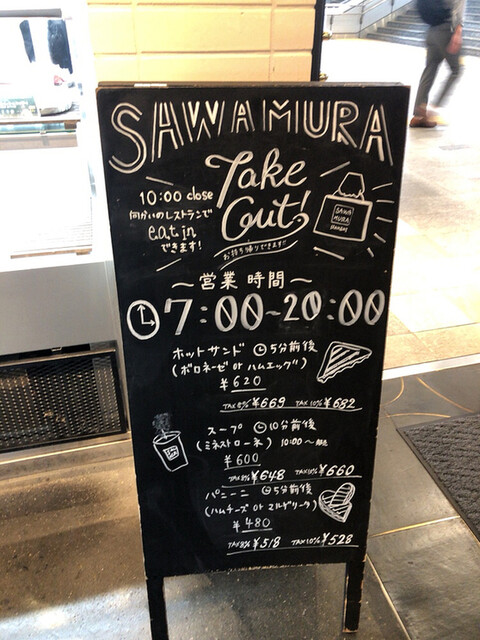 SAWAMURA
Take
Out!
10:00 close
向かいのレストランで
eat in
できます!
お持ち帰りできます!!
SAWA
MURA
〜営業時間〜
7:00~20:00
ホットサンド 5分前後
(ボロネーゼ or ハムエッグ)
¥620
TAX8% ¥669 TAX10% ¥682
スープ 10分前後
(ミネストローネ) 10:00〜
¥600
TAX8% ¥648 TAX10% ¥660
パニーニ 5分前後
(ハムチーズ or マルゲリータ)
¥480
TAX8% ¥518 TAX10% ¥528